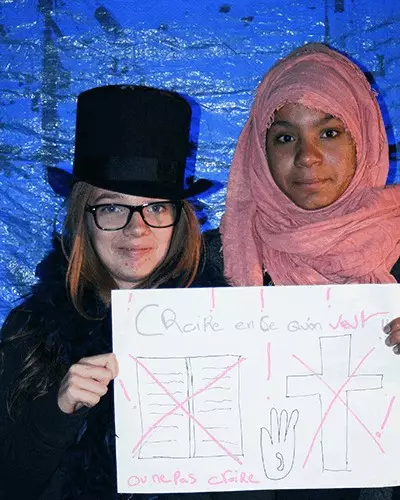 ! CRoire en Ce qu'on veut !
ou ne pas croire